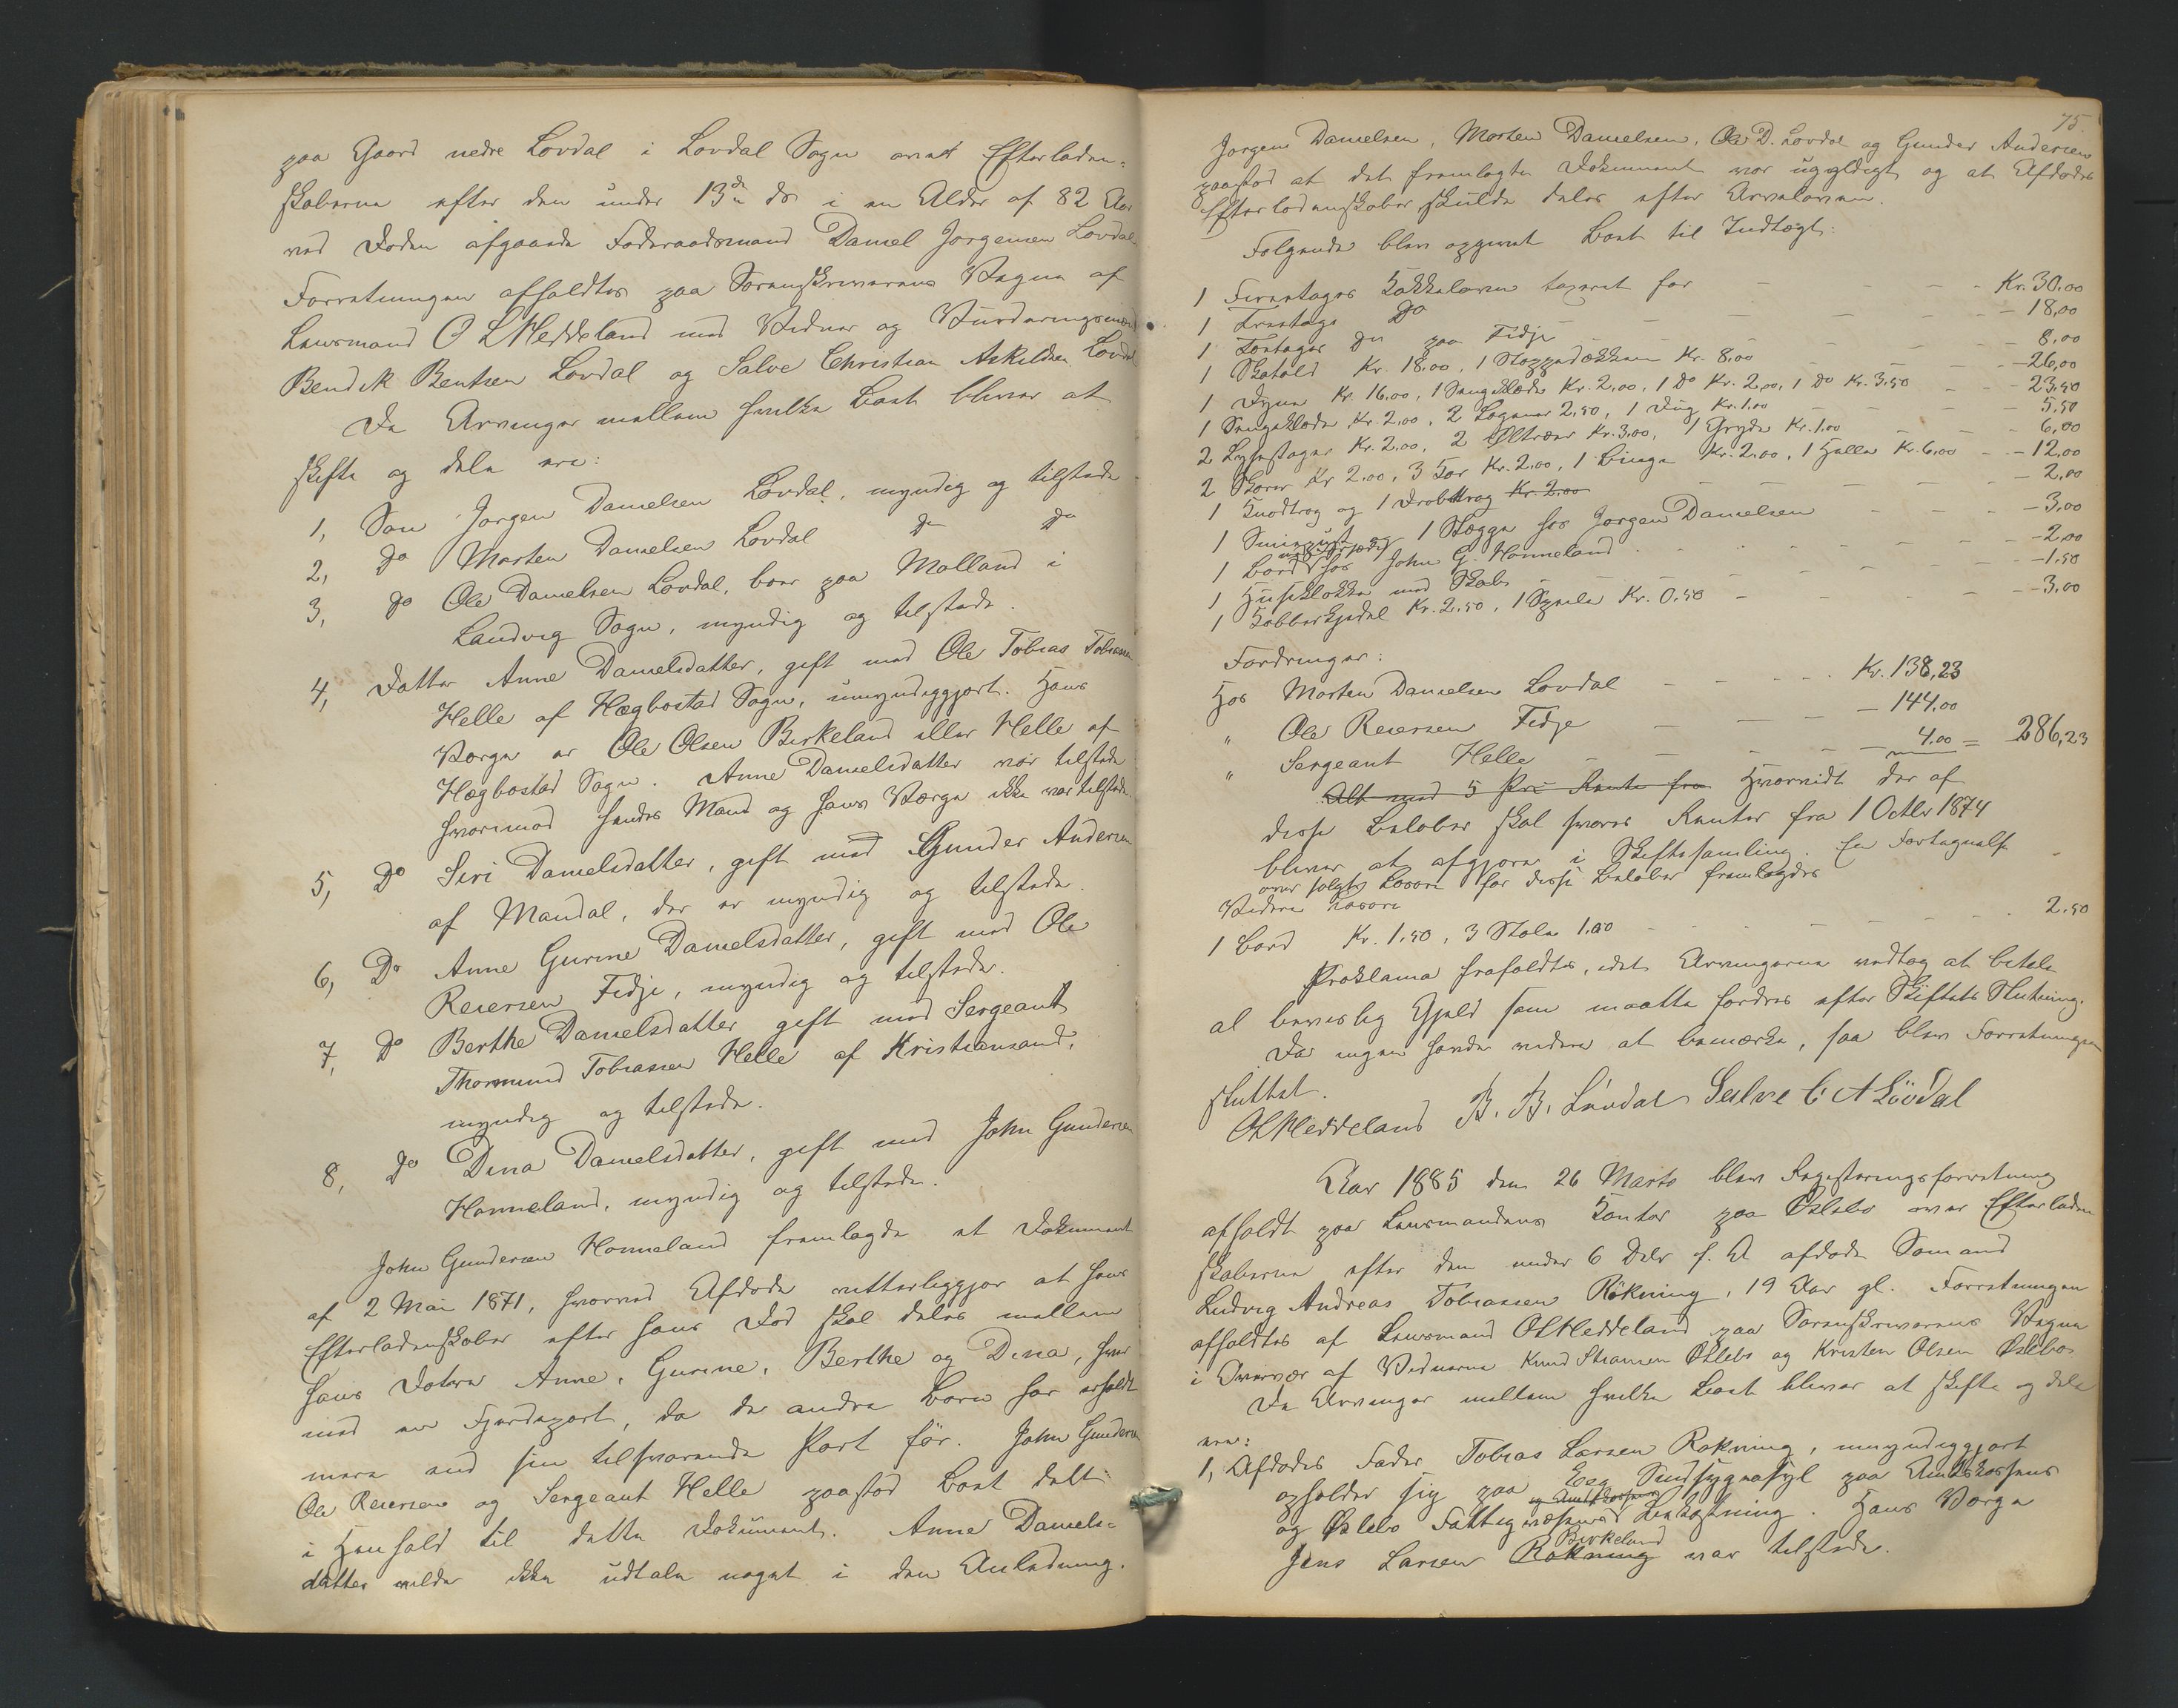 paa Gaard nedre Lovdal i Lovdal Sogn over Efterladen-
skaberne efter den under 13de ds i en Alder af 82 Aar
ved Døden afgaaede Føderaadsmand Daniel Jørgensen Lovdal
Forretningen afholdtes paa Sorenskriverens Vegne af
Lensmand O L Meddeland med Vidner og Vurderingsmænd
Bendik Bentsen Lovdal og Salve Christian Askildsen Lovdal
De Arvinger mellem hvilke Boet bliver at
skifte og dele ere:
1, Søn Jørgen Danielsen Lovdal, myndig og tilstede
2, Do Morten Danielsen Lovdal Do Do
3, Do Ole Danielsen Lovdal, boer paa Molland i
Landvig Sogn, myndig og tilstede.
4, Datter Anne Danielsdatter, gift med Ole Tobias Tobiassen
Helle af Hægbostad Sogn, umyndiggjort. Hans
Værge er Ole Olsen Birkeland eller Helle af
Hægbostad Sogn. Anne Danielsdatter var tilstede
hvorimod hendes Mand og hans Værge ikke var tilstede.
5, Do Siri Danielsdatter, gift med Gunder Andersen
af Mandal, der er myndig og tilstede.
6, Do Anne Gurine Danielsdatter, gift med Ole
Reiersen Fidje, myndig og tilstede.
7, Do Berthe Danielsdatter gift med Sergeant
Thormund Tobiassen Helle af Kristiansand,
myndig og tilstede.
8, Do Dina Danielsdatter, gift med John Gundersen
Honneland, myndig og tilstede.
John Gundersen Honneland fremlagde et Dokument
af 2 Mai 1871, hvorved Afdøde vitterliggjør at hans
Efterladenskaber efter hans Død skal deles mellem
hans Døtre Anne, Gurine, Berthe og Dina, hver
med en Fjerdepart, da de andre Børn har erholdt
mere end sin tilsvarende Part før. John Gundersen
Ole Reiersen og Sergeant Helle paastod Boet delt
i Henhold til dette Dokument. Anne Daniels-
datter vilde ikke udtale noget i den Anledning.
75.
Jørgen Danielsen, Morten Danielsen, Ole D. Lovdal og Gunder Andersen
paastod at det fremlagte Dokument var ugyldigt og at Afdødes
Efterladenskaber skulde deles efter Arveloven.
Følgende blev opgivet Boet til Indtægt:
1 Fireetages Kakkelovn taxeret for Kr. 30,00
1 Treetage Do - 18,00
1 Toetages Do paa Fidje - 8,00
1 Skatold Kr. 18,00, 1 Stoppedækken Kr. 8,00 - 26,00
1 Dyne Kr. 16,00, 1 Sengeklæde Kr. 2,00, 1 Do Kr. 2,00, 1 Do Kr. 3,50 - 23,50
1 Sengeklæde Kr. 2,00, 2 Lagener 2,50, 1 Dug Kr. 1,00 - 5,50
2 Lysestager Kr. 2,00, 2 Kr. 3,00, 1 Gryde Kr. 1,00 - 6,00
2 Kr 2,00, 3 Kar Kr. 2,00, 1 Binge Kr. 2,00, 1 Helle Kr. 6,00 - 12,00
1 Knodtrog og 1 Kr. 2.00 - 2,00
1 og 1 hos Jørgen Danielsen - 3,00
1 Bord hos John G. Honneland - 2,00
1 Husklokke med Skab - 1,50
1 Kobberkjedel Kr. 2,50, 1 Kr. 0,50 - 3,00
Fordringer:
Hos Morten Danielsen Lovdal Kr. 138,23
" Ole Reiersen Fidje - 144,00
" Sergeant Helle - 4,00 = 286,23
Alt med 5 Pct Rente fra Hvorvidt der af
disse Beløber skal svares Renter fra 1 Octbr 1874
bliver at afgjøre i Skiftesamling. En Fortegnelse
over solgte Løsøre for disse Beløber fremlagdes
Videre Løsøre
1 Bord Kr. 1,50, 3 Stole 1.00 2.50
Proklama frafaldtes, idet Arvingerne vedtog at betale
al beviselig Gjeld som maatte fordres efter Skiftets Slutning.
Da ingen havde videre at bemærke, saa blev Forretningen
sluttet.
OLMeddeland B. B. Lövdal Salve C A Lövdal
Aar 1885 den 26 Marts blev Registreringsforretning
afholdt paa Lensmandens Kontor paa Øslebø over Efterladen
skaberne efter den under 6 Debr f. A afdøde Sømand
Ludvig Andreas Tobiassen Røkning, 19 Aar gl. Forretningen
afholdtes af Lensmand OLMeddeland paa Sorenskriverens Vegne
i Overvær af Vidnerne Knud Øslebø og Kristen Olsen Øslebø
De Arvinger mellem hvilke Boet bliver at skifte og dele
ere:
1, Afdødes Fader Tobias Larsen Røkning, umyndiggjort
opholder sig paa Eeg Sindsygeasyl paa Amtskassens
og Amtskassens
og Øslebø Fattigvæsens Bekostning. Hans Værge
Birkeland
Jens Larsen Røkning var tilstede.